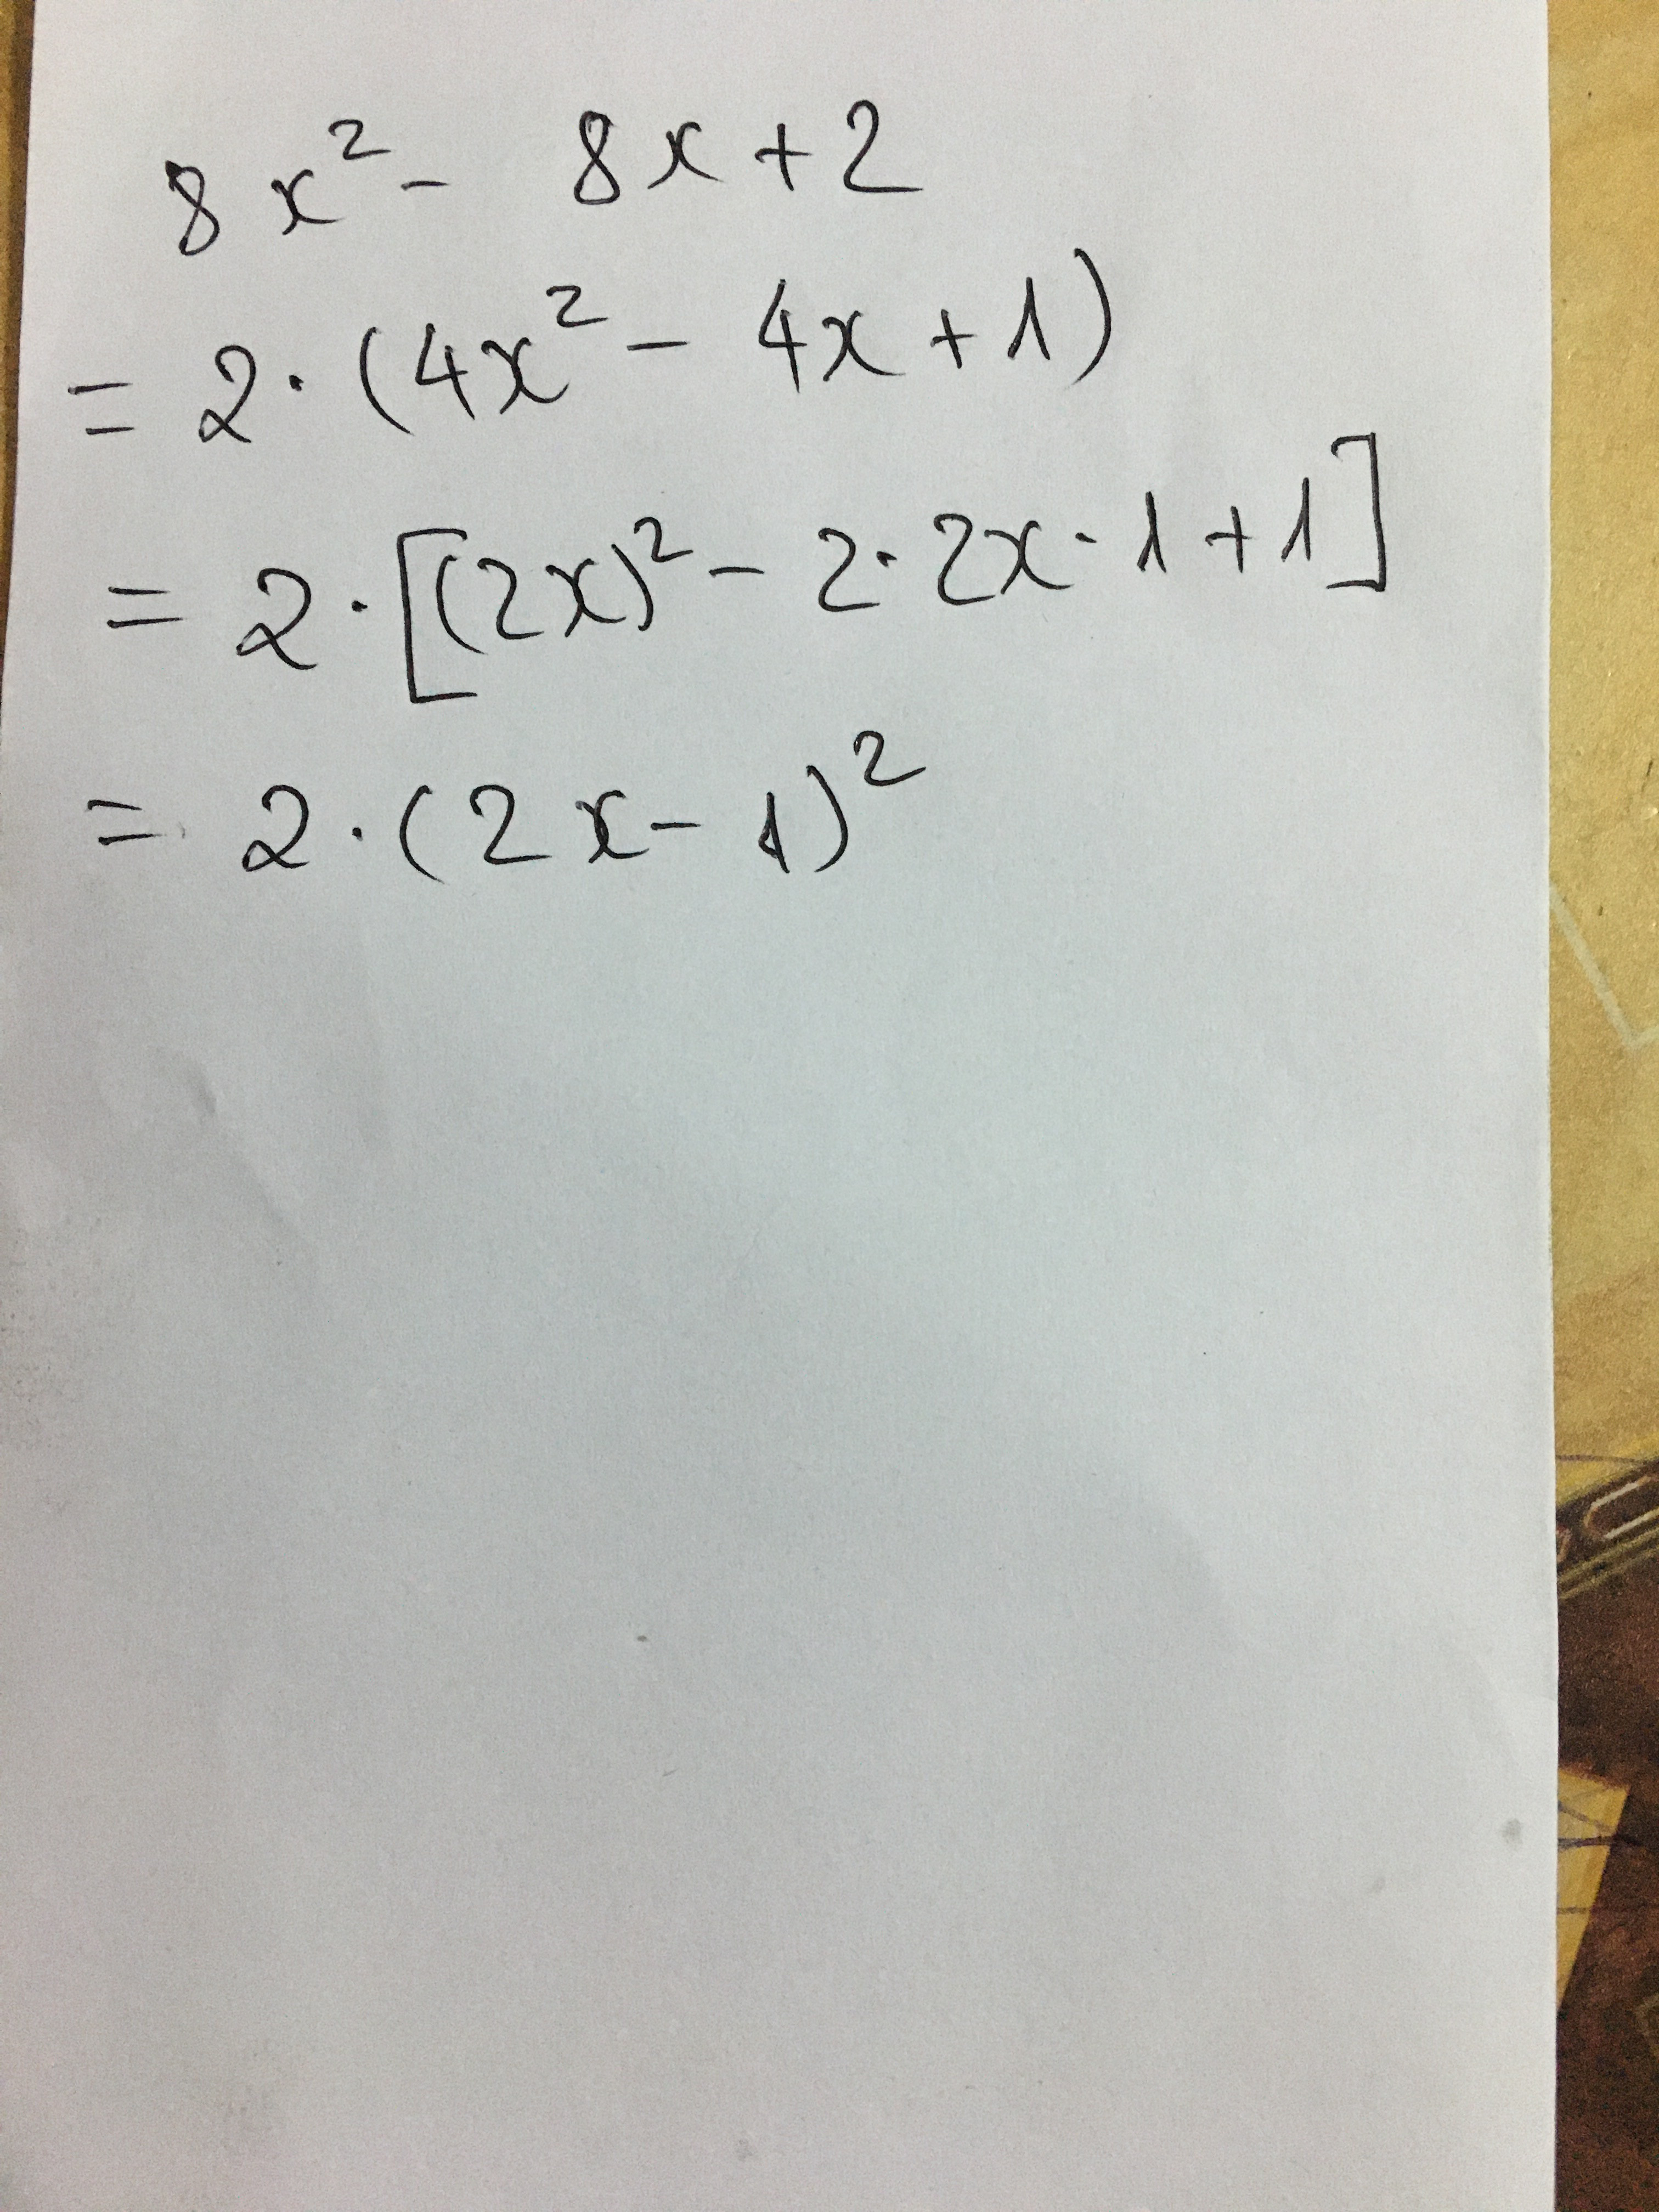 8x² - 8x + 2
= 2 · (4x² - 4x + 1)
= 2 · [(2x)² - 2 · 2x · 1 + 1]
= 2 · (2x - 1)²